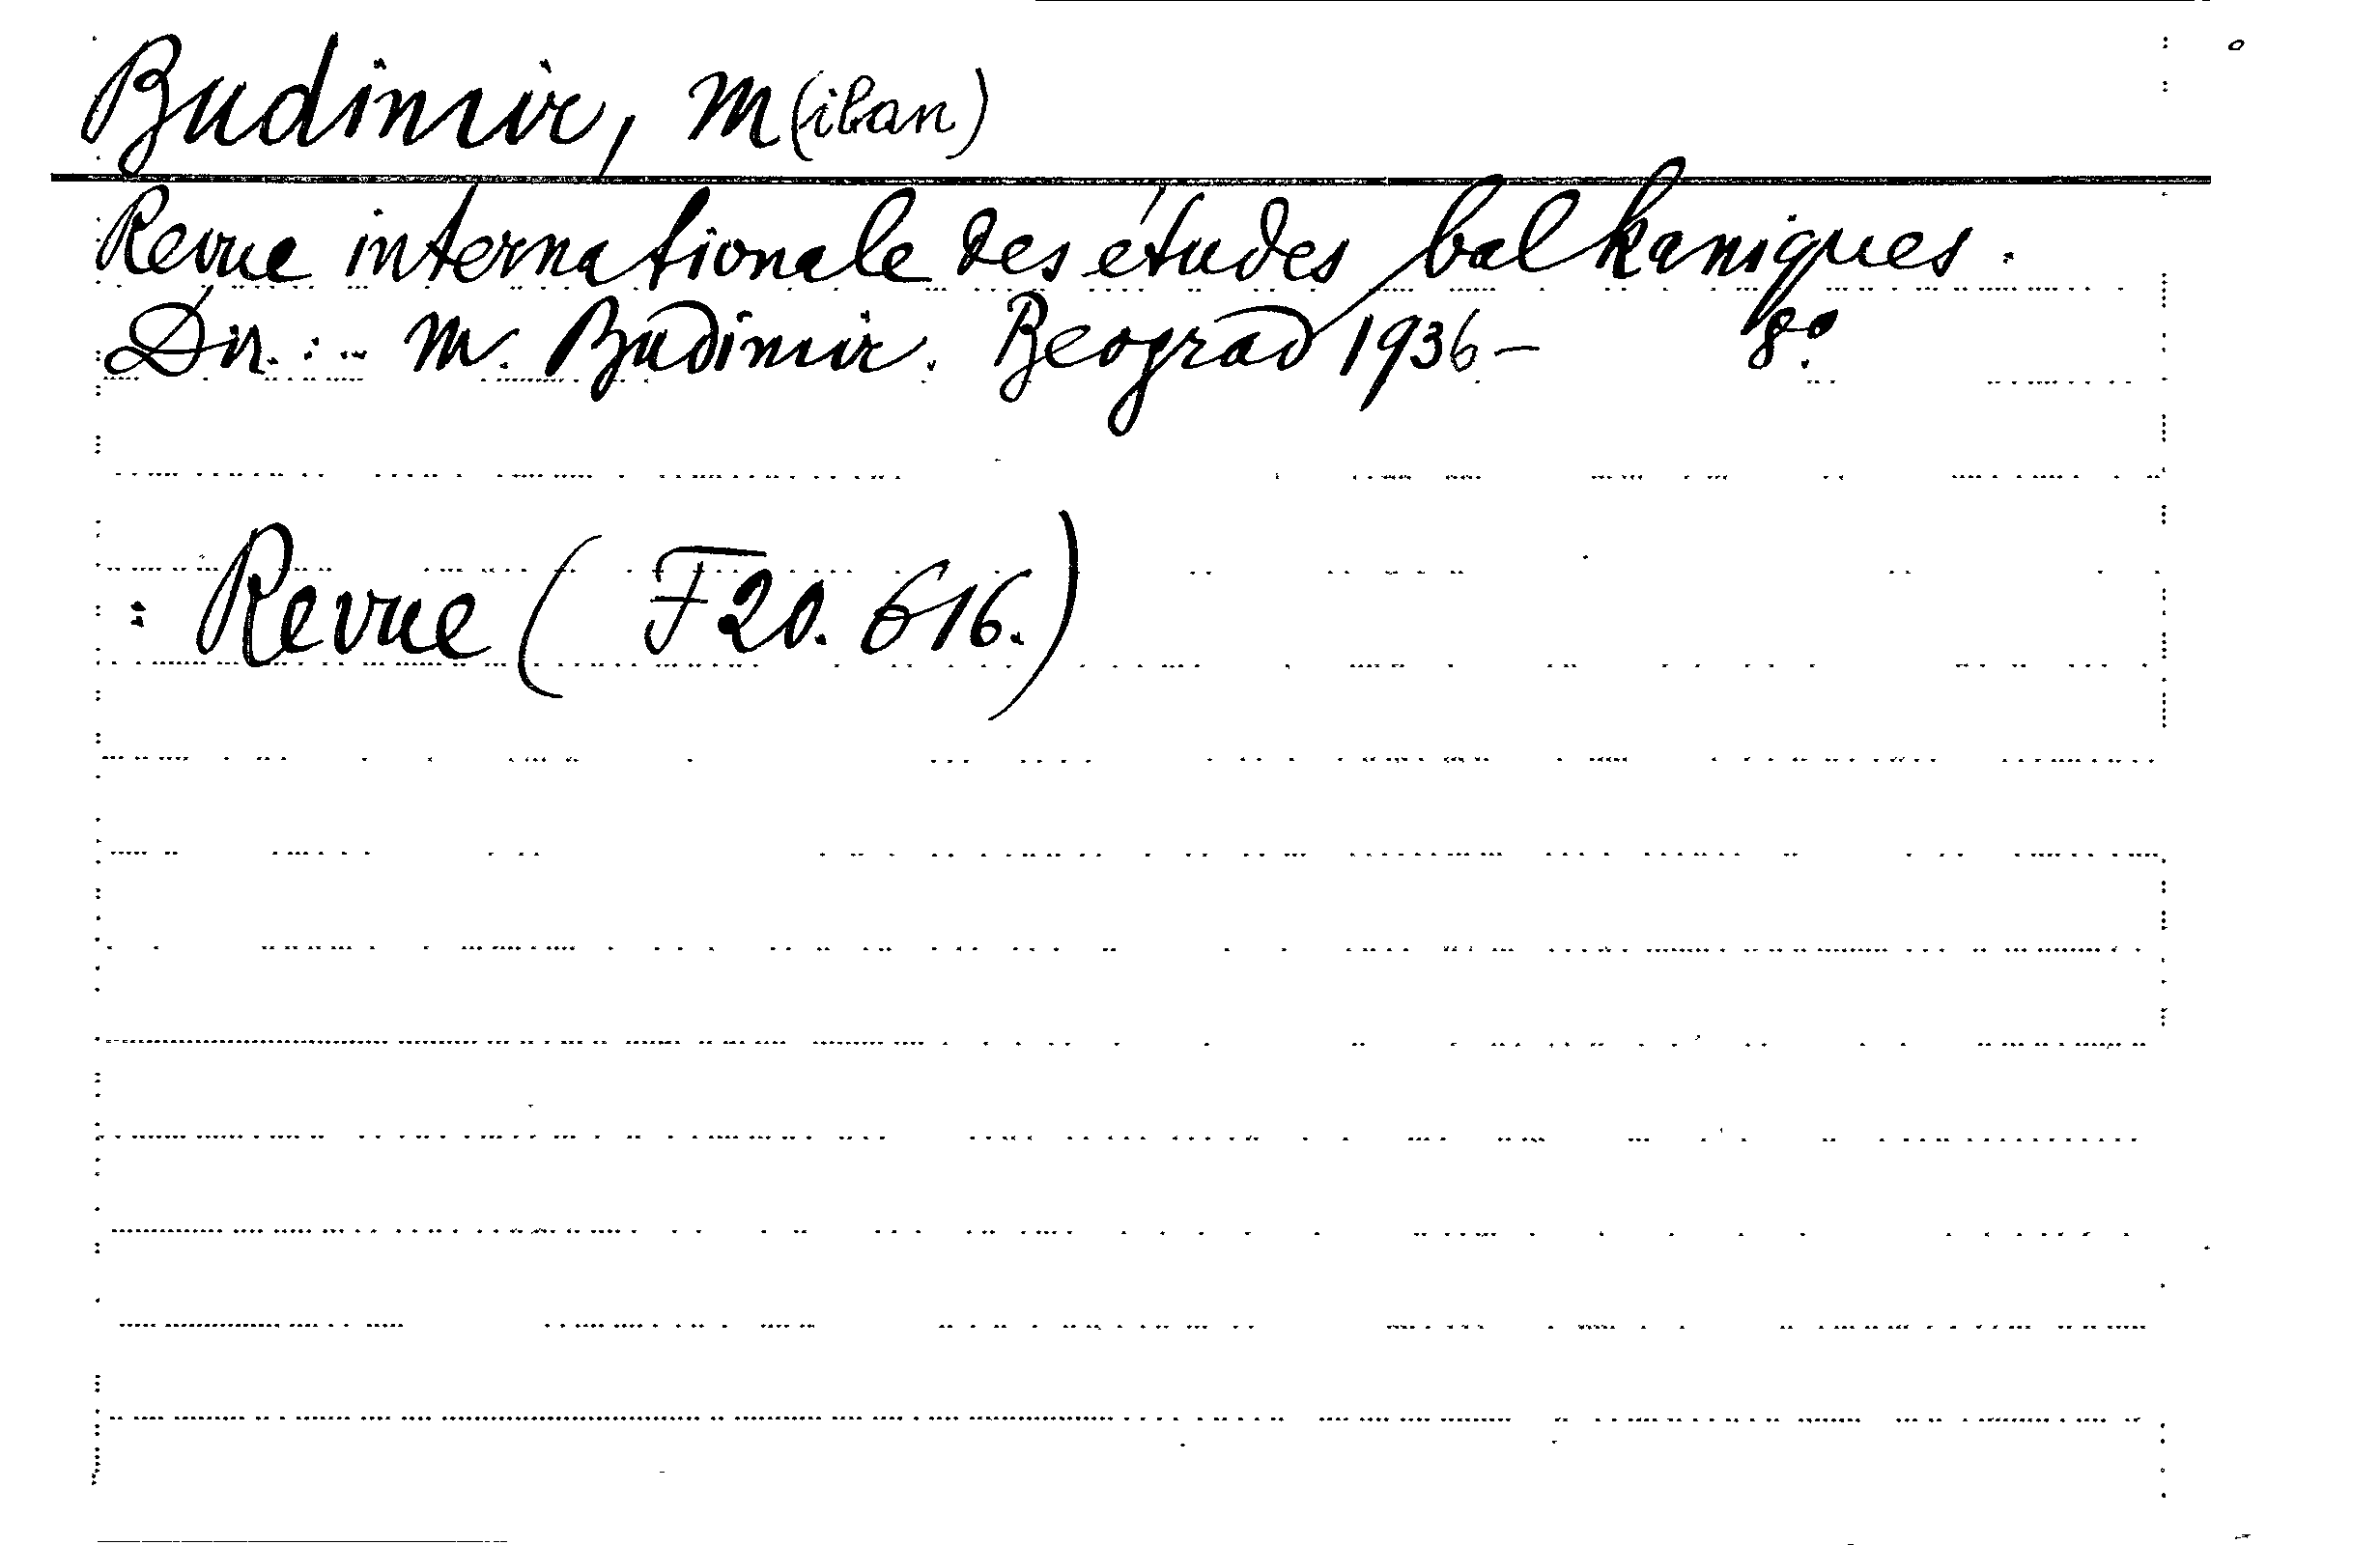 Budimir, M(ilan)
Revue internationale des études balkaniques.
Dir.: .. M. Budimir. Beograd 1936- 8°.
: Revue ( F20. 616.)